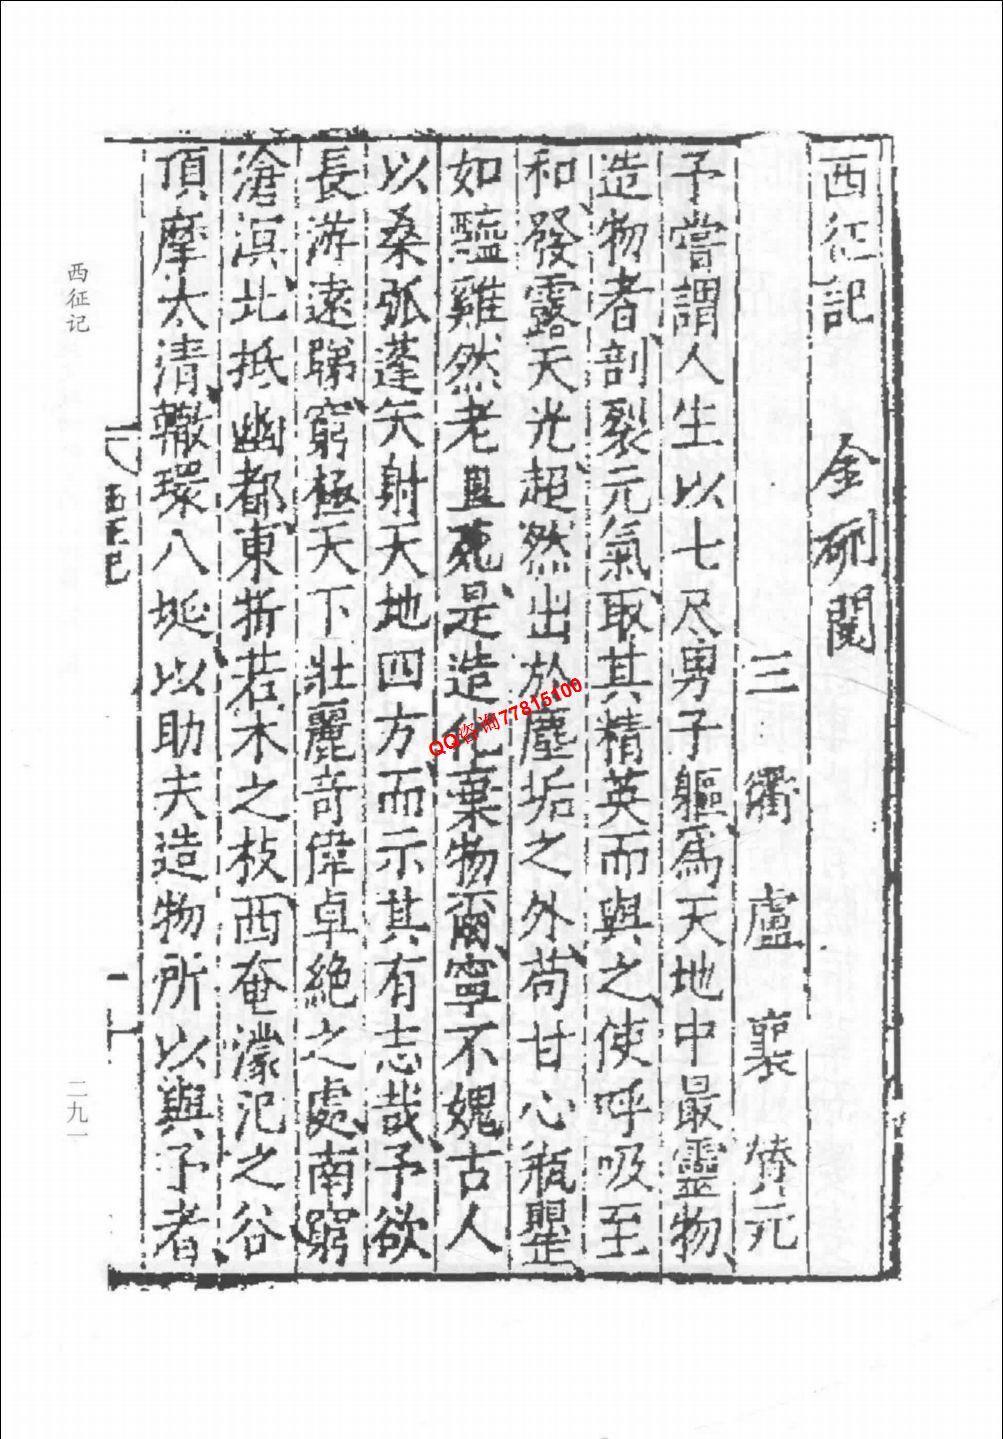 西征記　金硎閱
三衢　盧襄　贊元
予嘗謂人生以七尺男子軀爲天地中最靈物
造物者剖裂元氣取其精英而與之使呼吸至
和發露天光超然出於塵垢之外苟甘心瓶罌
如醯雞然老且死是造化棄物爾寧不媿古人
以桑弧蓬矢射天地四方而示其有志哉予欲
長游遠睇窮極天下壯麗奇偉卓絕之處南窮
滄溟北抵幽都東折若木之枝西奄濛汜之谷
頂摩太清轍環八埏以助夫造物所以與予者
西征記
一
西征记
二九一
QQ咨询77815100